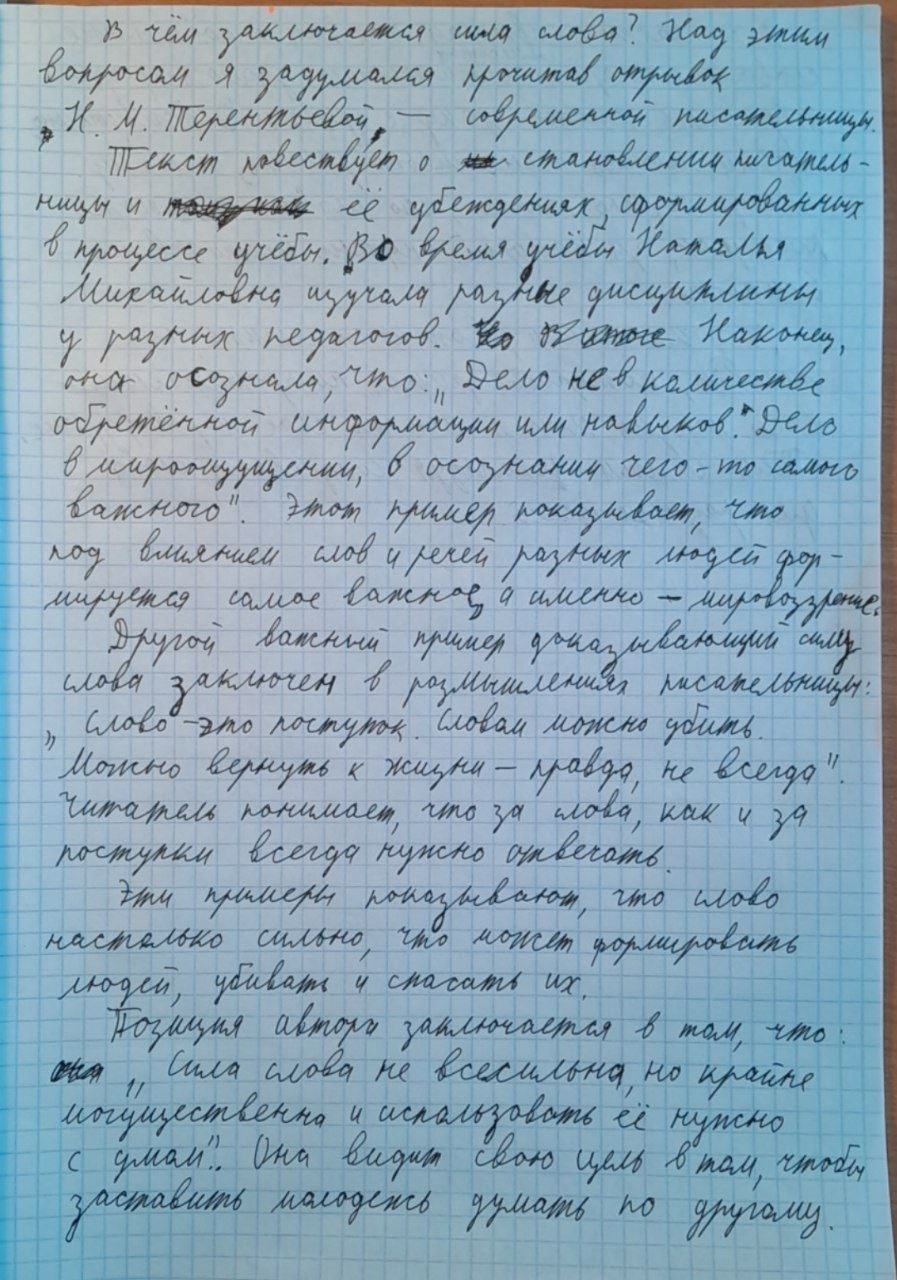 В чём заключается сила слова? Над этим
вопросом я задумался прочитав отрывок
„Н. М. Терентьевой„ — современной писательницы.
Текст повествует о становлении писатель-
ницы и её убеждениях, сформированных
в процессе учёбы. Во время учёбы Наталья
Михайловна изучала разные дисциплины
у разных педагогов. Наконец,
она осознала, что: „Дело не в количестве
обретённой информации или навыков". Дело
в мироощущении, в осознании чего-то самого
важного". Этот пример показывает, что
под влиянием слов и речей разных людей фор-
мируется самое важное, а именно — мировоззрение.
Другой важный пример доказывающий силу
слова заключен в размышлениях писательницы:
„Слово - это поступок. Словом можно убить.
Можно вернуть к жизни — правда, не всегда".
Читатель понимает, что за слова, как и за
поступки всегда нужно отвечать.
Эти примеры показывают, что слово
настолько сильно, что может формировать
людей, убивать и спасать их.
Позиция автора заключается в том, что:
„Сила слова не всесильна, но крайне
могущественна и использовать её нужно
с умом". Она видит свою цель в том, чтобы
заставить молодежь думать по другому.